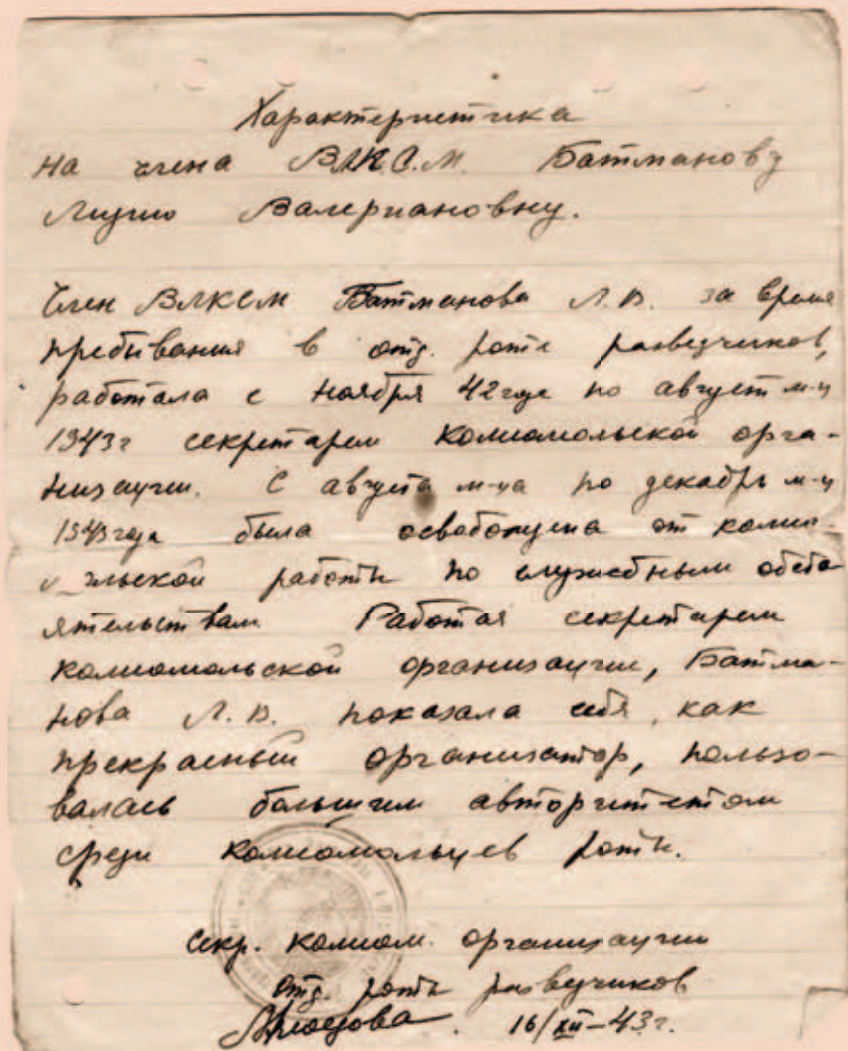 Характеристика
на члена ВЛКСМ. Батманову
Лидию Валериановну.
Член ВЛКСМ Батманова Л.В. за время
пребывания в отд. роте разведчиков,
работала с ноября 42 года по август м-ц
1943г секретарем комсомольской орга-
низации. С августа м-ца по декабрь м-ц
1943 года была освобождена от комсо-
мольской работы по служебным обсто-
ятельствам Работая секретарем
комсомольской организации, Батма-
нова Л.В. показала себя, как
прекрасный организатор, пользо-
валась большим авторитетом
среди комсомольцев роты.
Секр. комсом. организации
отд. роты разведчиков
16/XII-43г.